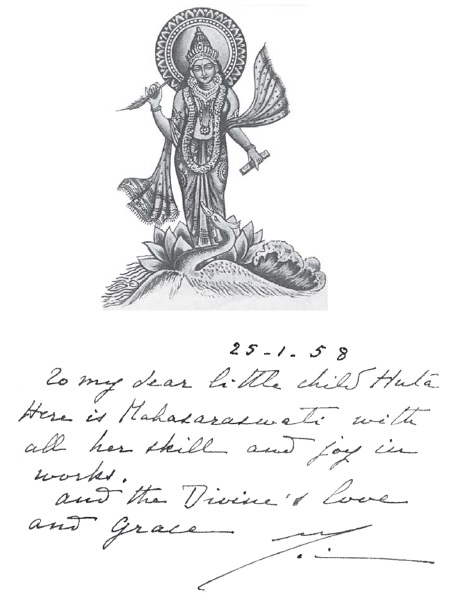 25-1.58
To my dear little child Hutā
Here is Mahasaraswati with
all her skill and joy in
works.
and the Divine's love
and Grace